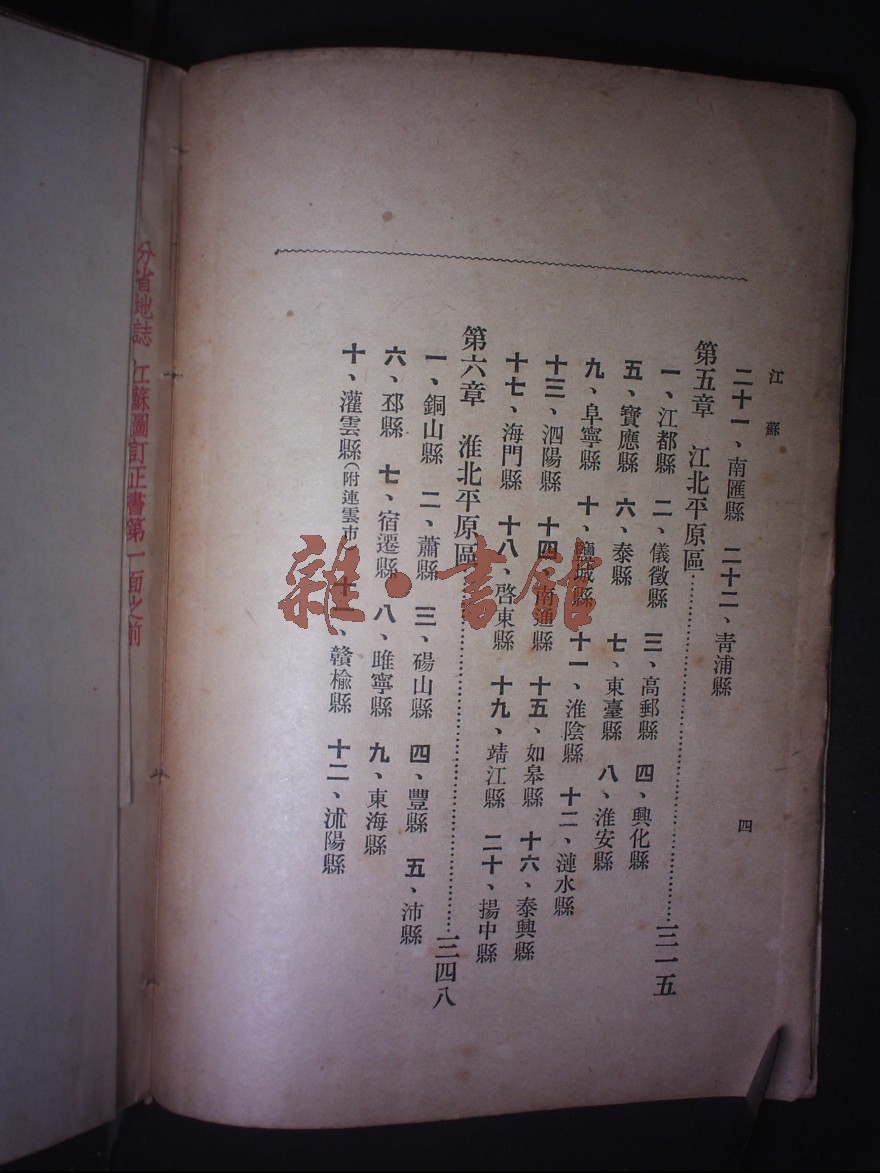 江蘇
四
二十一、南匯縣 二十二、青浦縣
第五章 江北平原區……三一五
一、江都縣 二、儀徵縣 三、高郵縣 四、興化縣
五、寶應縣 六、泰縣 七、東臺縣 八、淮安縣
九、阜寧縣 十、鹽城縣 十一、淮陰縣 十二、漣水縣
十三、泗陽縣 十四、南通縣 十五、如皋縣 十六、泰興縣
十七、海門縣 十八、啓東縣 十九、靖江縣 二十、揚中縣
第六章 淮北平原區……三四八
一、銅山縣 二、蕭縣 三、碭山縣 四、豐縣 五、沛縣
六、邳縣 七、宿遷縣 八、睢寧縣 九、東海縣
十、灌雲縣(附連雲市) 十一、贛榆縣 十二、沭陽縣
分省地誌 江蘇圖訂正書第一面之前
雜·書館